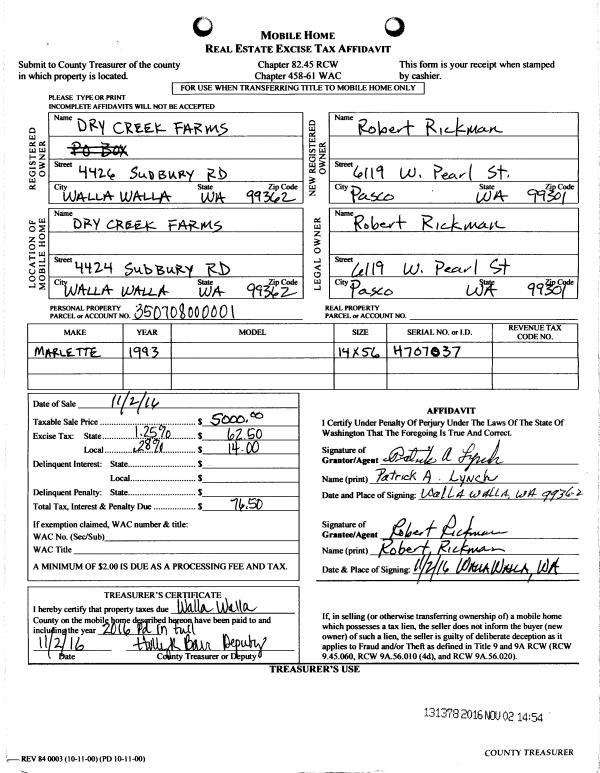 MOBILE HOME
REAL ESTATE EXCISE TAX AFFIDAVIT
Submit to County Treasurer of the county in which property is located.
Chapter 82.45 RCW
Chapter 458-61 WAC
This form is your receipt when stamped by cashier.
FOR USE WHEN TRANSFERRING TITLE TO MOBILE HOME ONLY
PLEASE TYPE OR PRINT
INCOMPLETE AFFIDAVITS WILL NOT BE ACCEPTED
REGISTERED OWNER
Name DRY CREEK FARMS
PO BOX
Street 4426 SUDBURY RD
City WALLA WALLA State WA Zip Code 99362
NEW REGISTERED OWNER
Name Robert Rickman
Street 6119 W. Pearl St.
City Pasco State WA Zip Code 99301
LOCATION OF MOBILE HOME
Name DRY CREEK FARMS
Street 4424 SUDBURY RD
City WALLA WALLA State WA Zip Code 99362
LEGAL OWNER
Name Robert Rickman
Street 6119 W. Pearl St
City Pasco State WA Zip Code 99301
PERSONAL PROPERTY
PARCEL or ACCOUNT NO. 350708000001
REAL PROPERTY
PARCEL or ACCOUNT NO.
MAKE YEAR MODEL SIZE SERIAL NO. or I.D. REVENUE TAX CODE NO.
MARLETTE 1993 14X56 H707037
Date of Sale 11/2/16
Taxable Sale Price $ 5000.00
Excise Tax: State 1.25% $ 62.50
Local .28% $ 14.00
Delinquent Interest: State $
Local $
Delinquent Penalty: State $
Total Tax, Interest & Penalty Due $ 76.50
If exemption claimed, WAC number & title:
WAC No. (Sec/Sub)
WAC Title
A MINIMUM OF $2.00 IS DUE AS A PROCESSING FEE AND TAX.
AFFIDAVIT
I Certify Under Penalty Of Perjury Under The Laws Of The State Of
Washington That The Foregoing Is True And Correct.
Signature of
Grantor/Agent Patrick A Lynch
Name (print) Patrick A. Lynch
Date and Place of Signing: WALLA WALLA, WA 99362
Signature of
Grantee/Agent Robert Rickman
Name (print) Robert, Rickman
Date & Place of Signing: 11/2/16 WALLA WALLA, WA
TREASURER'S CERTIFICATE
I hereby certify that property taxes due Walla Walla
County on the mobile home described hereon have been paid to and
including the year 2016 Pd in full
11/2/16 Deputy
Date County Treasurer or Deputy
If, in selling (or otherwise transferring ownership of) a mobile home
which possesses a tax lien, the seller does not inform the buyer (new
owner) of such a lien, the seller is guilty of deliberate deception as it
applies to Fraud and/or Theft as defined in Title 9 and 9A RCW (RCW
9.45.060, RCW 9A.56.010 (4d), and RCW 9A.56.020).
TREASURER'S USE
131378 2016 NOV 02 14:54
REV 84 0003 (10-11-00) (PD 10-11-00)
COUNTY TREASURER